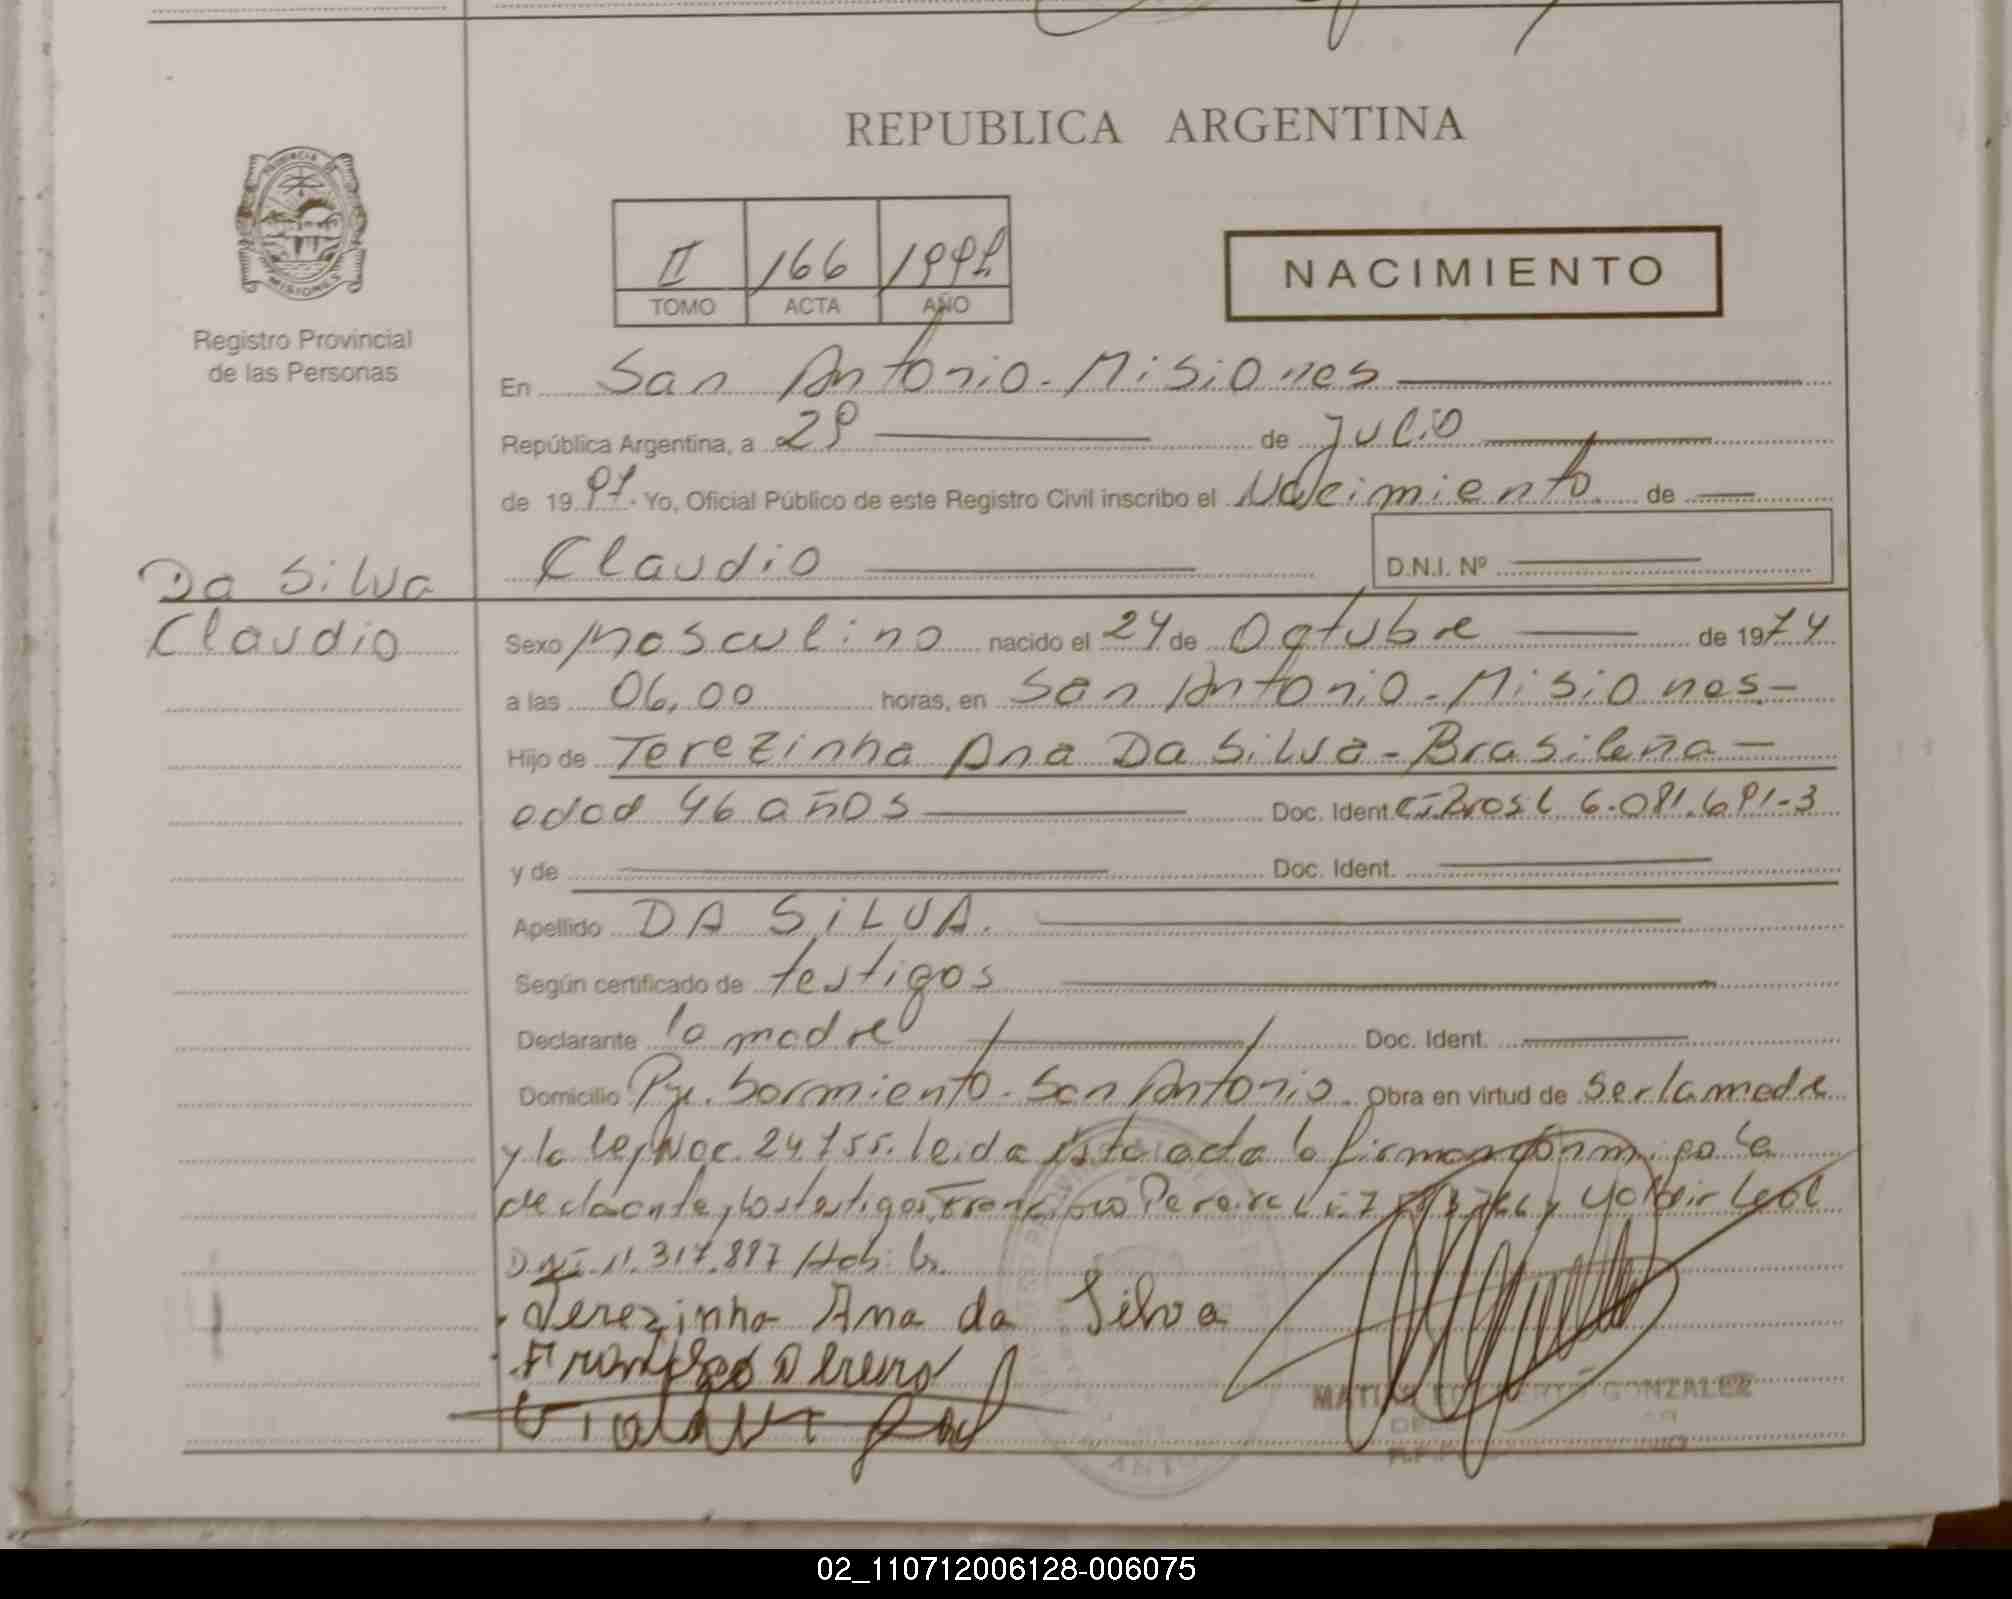 REPUBLICA ARGENTINA
PROVINCIA DE MISIONES
Registro Provincial
de las Personas
II 166
TOMO ACTA AÑO
NACIMIENTO
En San Antonio - Misiones
República Argentina, a 29 de Julio
de 1997. Yo, Oficial Público de este Registro Civil inscribo el Nacimiento de
Claudio D.N.I. Nº
Da Silva
Claudio
Sexo Masculino nacido el 24 de Octubre de 1974
a las 06,00 horas, en San Antonio - Misiones -
Hijo de Terezinha Ana Da Silva - Brasileña -
edad 46 años Doc. Ident. C.I. Bras L 6.081.691-3
y de Doc. Ident.
Apellido DA SILVA.
Según certificado de testigos
Declarante la madre Doc. Ident.
Domicilio Pje. Sarmiento - San Antonio. Obra en virtud de ser la madre
y la ley Nac. 24755. leida esta acta la firman conmigo la
declarante y los testigos Francisco Pereira y Leal
D.N.I. 11.317.887
Terezinha Ana da Silva
GONZALEZ
02_110712006128-006075